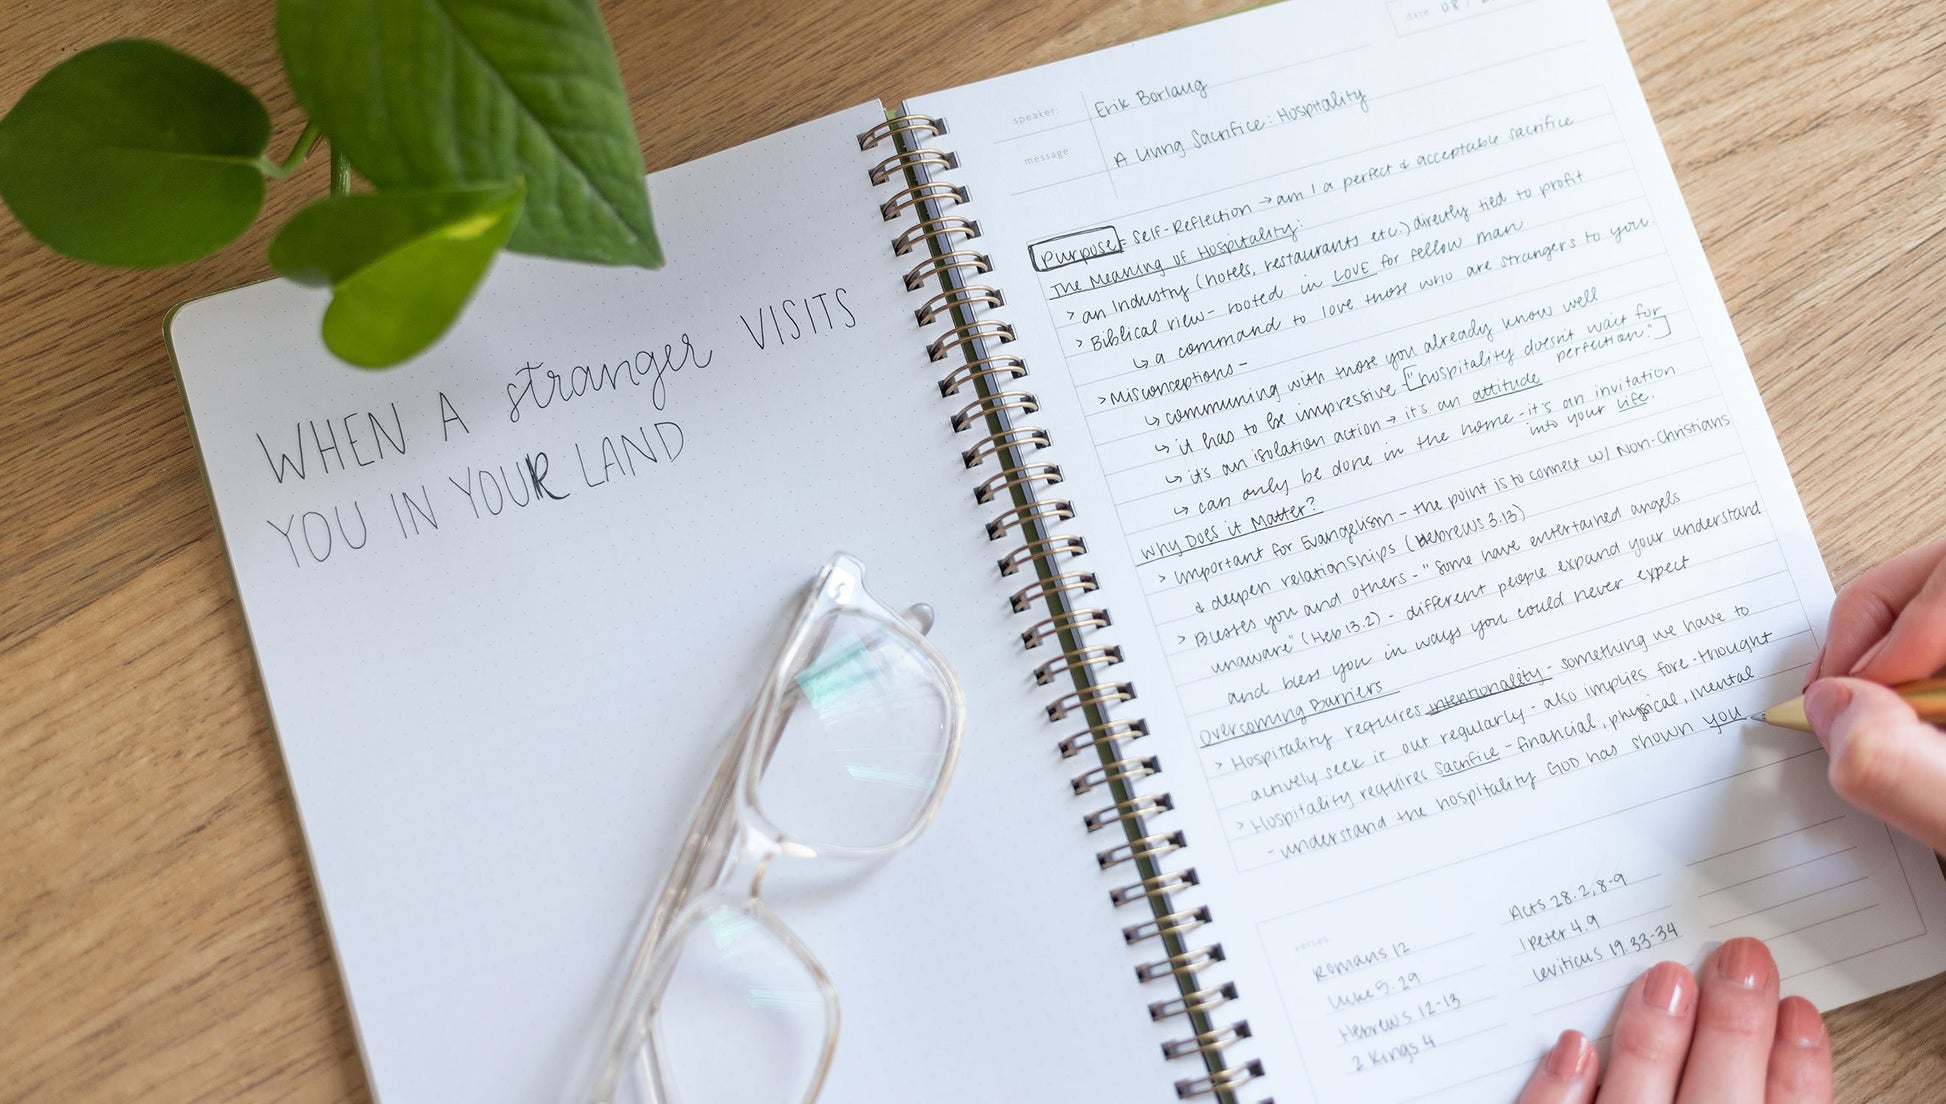 WHEN A stranger VISITS
YOU IN YOUR LAND
date: 08 /
speaker: Erik Borlaug
message: A Living Sacrifice: Hospitality
Purpose = Self-Reflection → am I a perfect & acceptable sacrifice
The Meaning of Hospitality:
> an Industry (hotels, restaurants etc.) directly tied to profit
> Biblical view - rooted in LOVE for fellow man
↳ a command to love those who are strangers to you.
> Misconceptions -
↳ communing with those you already know well
↳ it has to be impressive - ["hospitality doesn't wait for
perfection."]
↳ it's an isolation action → it's an attitude
↳ can only be done in the home - it's an invitation
into your life.
Why Does it Matter?
> Important for Evangelism - the point is to connect w/ Non-Christians
& deepen relationships (Hebrews 3.13)
> Blesses you and others - "some have entertained angels
unaware" (Heb 13.2) - different people expand your understand
and bless you in ways you could never expect
Overcoming Barriers
> Hospitality requires intentionality - something we have to
actively seek it out regularly - also implies fore-thought
> Hospitality requires Sacrifice - financial, physical, mental
- understand the hospitality GOD has shown you
verses:
Romans 12
Luke 5.29
Hebrews 12-13
2 Kings 4
Acts 28.2, 8-9
1 Peter 4.9
Leviticus 19.33-34